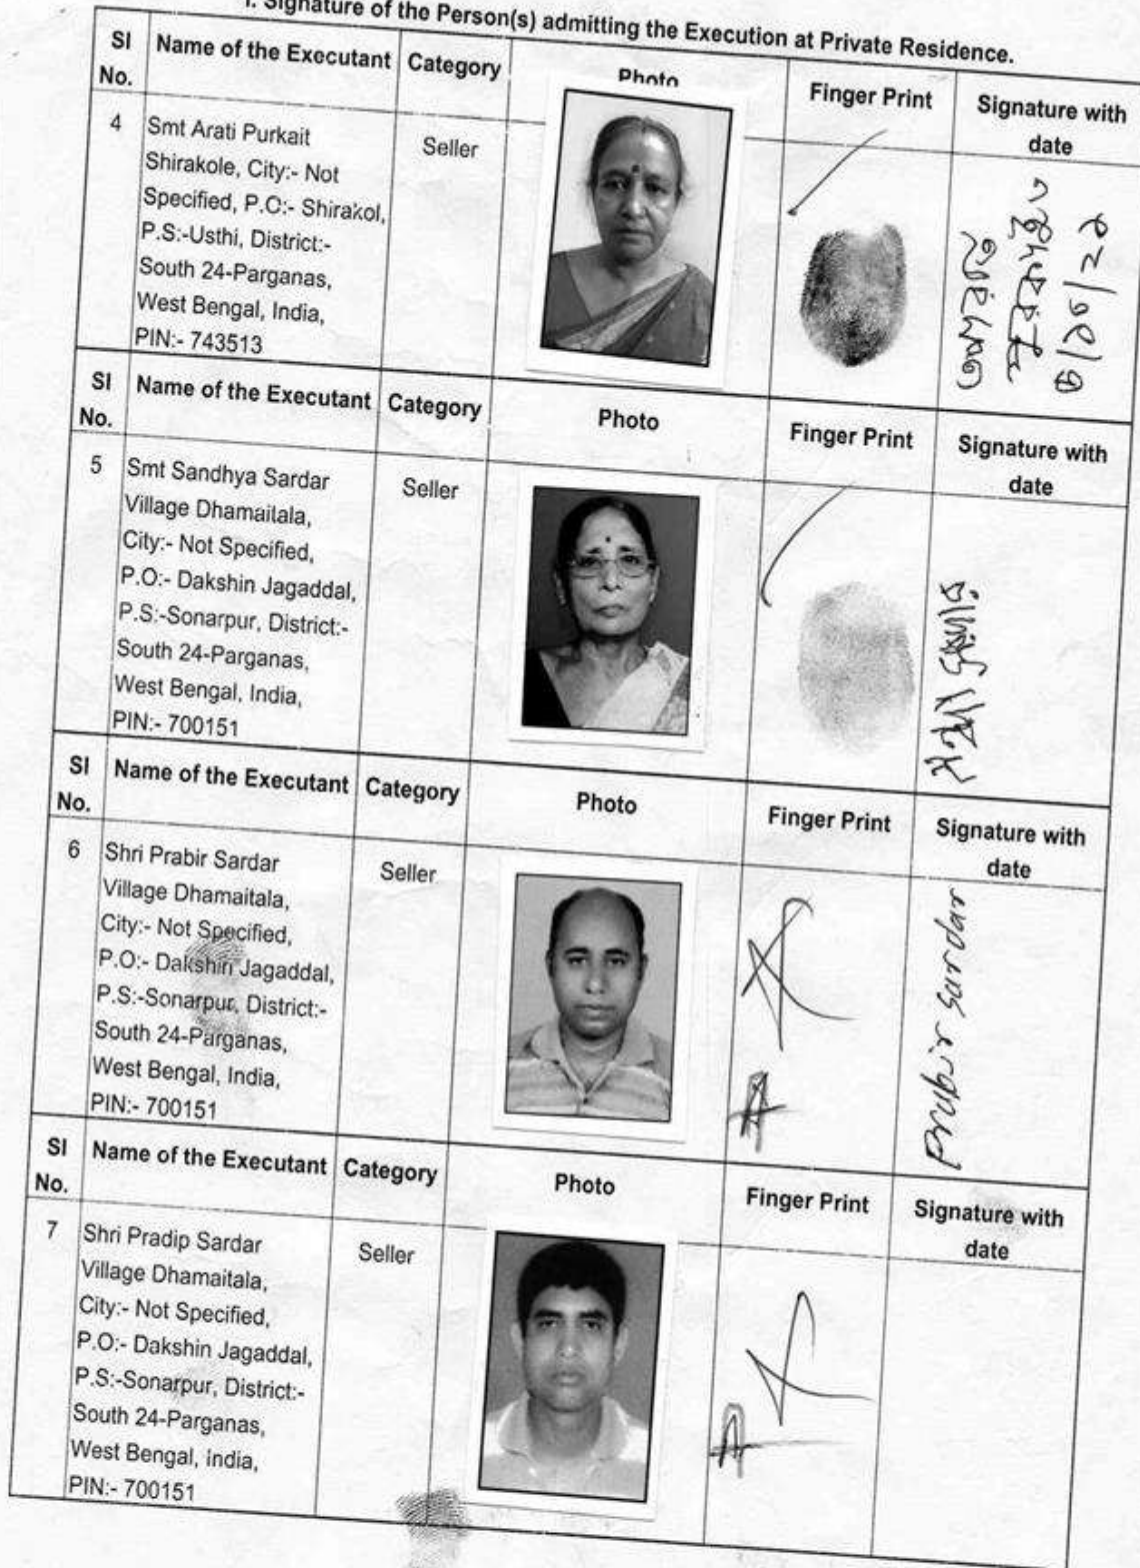 I. Signature of the Person(s) admitting the Execution at Private Residence.
SI No. Name of the Executant Category Photo Finger Print Signature with date
4 Smt Arati Purkait Seller
Shirakole, City:- Not
Specified, P.O:- Shirakol,
P.S:-Usthi, District:-
South 24-Parganas,
West Bengal, India,
PIN:- 743513
SI No. Name of the Executant Category Photo Finger Print Signature with date
5 Smt Sandhya Sardar Seller
Village Dhamaitala,
City:- Not Specified,
P.O:- Dakshin Jagaddal,
P.S:-Sonarpur, District:-
South 24-Parganas,
West Bengal, India,
PIN:- 700151
সন্ধ্যা সরদার
SI No. Name of the Executant Category Photo Finger Print Signature with date
6 Shri Prabir Sardar Seller
Village Dhamaitala,
City:- Not Specified,
P.O:- Dakshin Jagaddal,
P.S:-Sonarpur, District:-
South 24-Parganas,
West Bengal, India,
PIN:- 700151
Prabir Sardar
SI No. Name of the Executant Category Photo Finger Print Signature with date
7 Shri Pradip Sardar Seller
Village Dhamaitala,
City:- Not Specified,
P.O:- Dakshin Jagaddal,
P.S:-Sonarpur, District:-
South 24-Parganas,
West Bengal, India,
PIN:- 700151